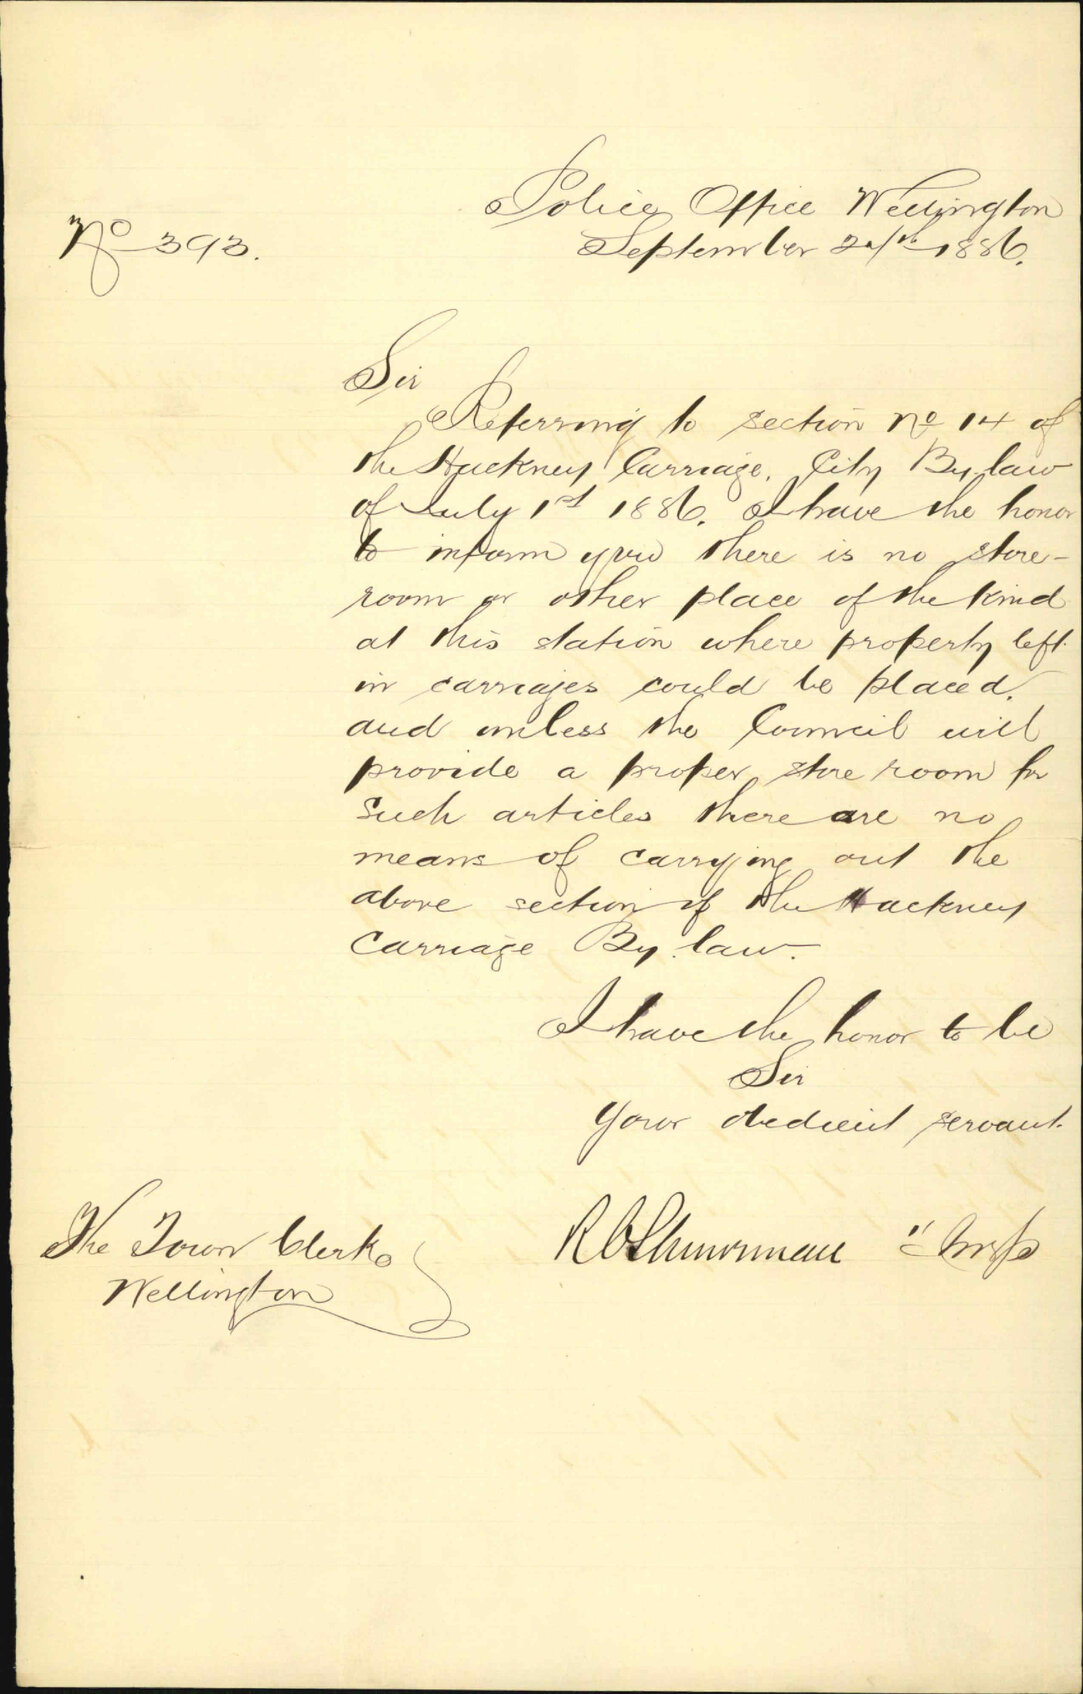 Police Office Wellington
No 393.
September 1886.
Sir
Referring to section No 14 of
the Hackney Carriage, City By-law
of July 1st 1886. I have the honor
to inform you there is no store-
room or other place of the kind
at this station where property left
in carriages could be placed.
and unless the Council will
provide a proper store room for
such articles there are no
means of carrying out the
above section of the Hackney
Carriage By-law.
I have the honor to be
Sir
Your obedient servant.
The Town Clerk
Wellington